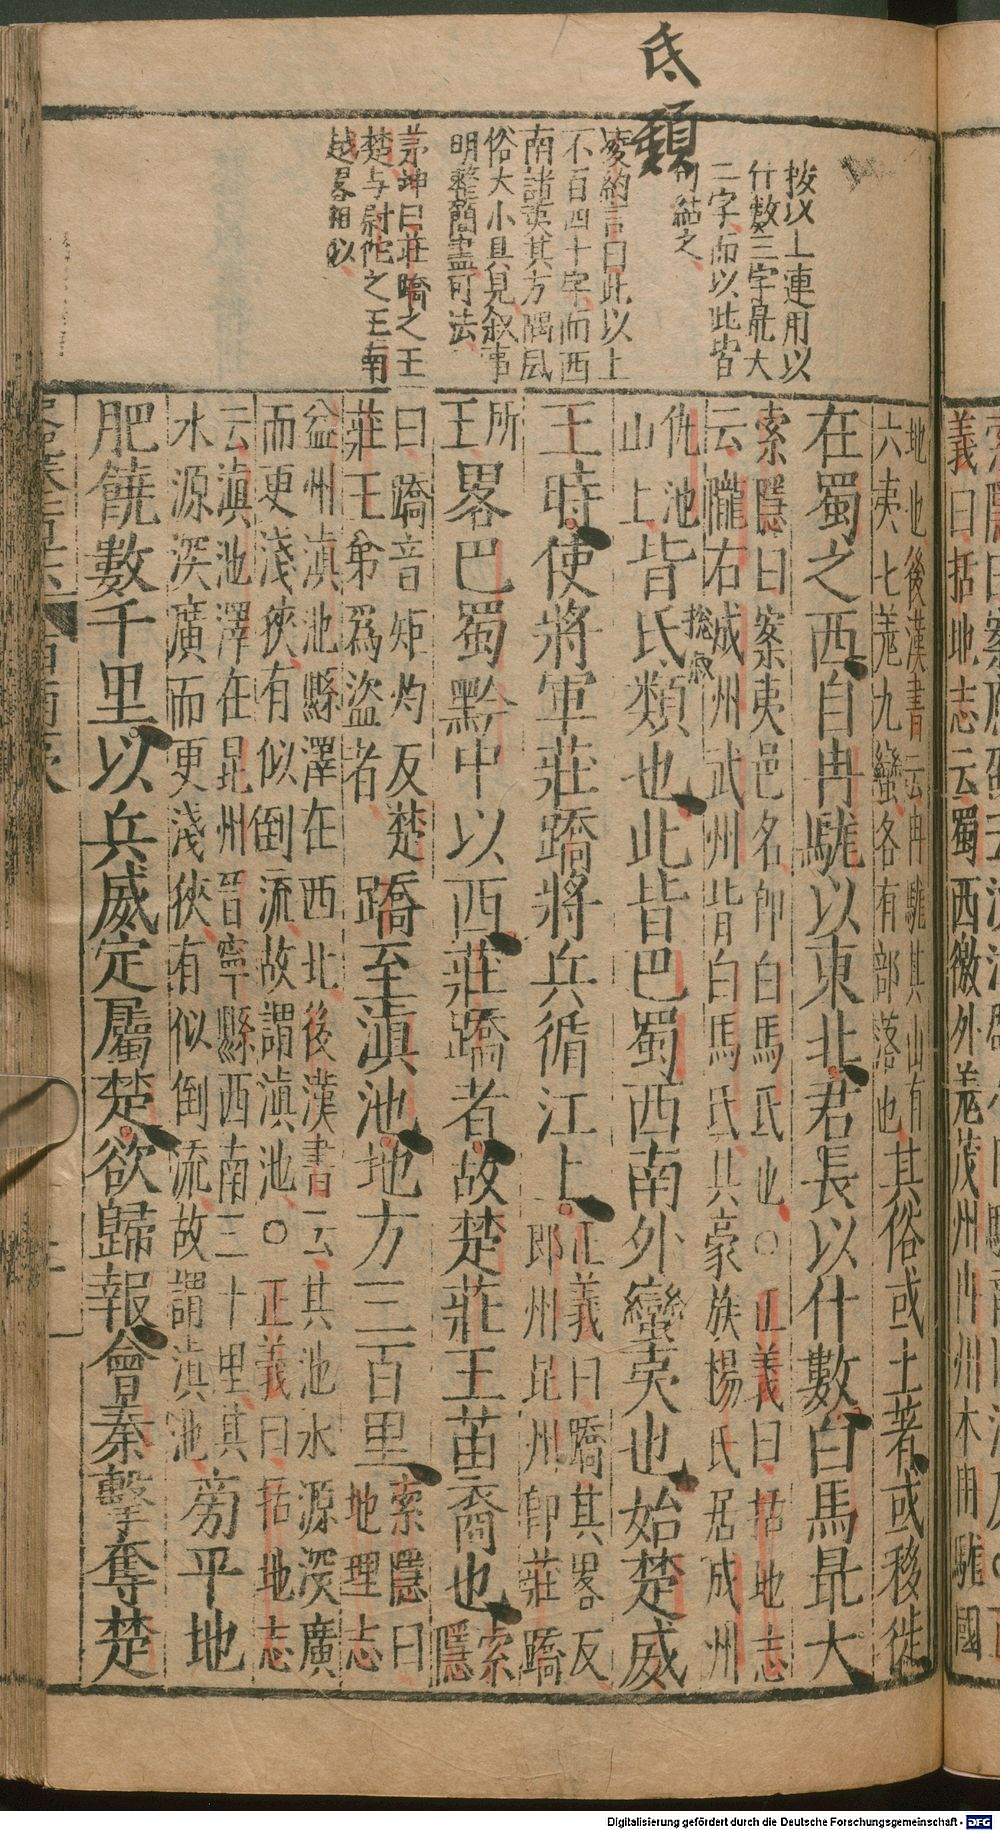 氐類
按以上連用以
什數三字最大
二字而以此皆
句結之
凌約言曰此以上
不百四十字而西
南諸夷其方隅風
俗大小具見叙事
明整簡盡可法
茅坤曰莊蹻之王
楚与尉佗之王南
越畧相似
義曰括地志云蜀西徼外羌茂州冉州本冉駹國
地也後漢書云冉駹其山有
六夷七羌九蠻各有部落也
其俗或土著或移徙
在蜀之西自冉駹以東北君長以什數白馬最大
索隱曰案夷邑名即白馬氐也○正義曰括地志
云隴右成州武州皆白馬氐其豪族楊氏居成州
仇池
山上
皆氐類也此皆巴蜀西南外蠻夷也始楚威
揔叙
王時使將軍莊蹻將兵循江上
正義曰蹻其畧反
郎州昆州即莊蹻
所
王
畧巴蜀黔中以西莊蹻者故楚莊王苗裔也
索
隱
曰蹻音矩灼反楚
莊王弟爲盜者
蹻至滇池地方三百里
索隱曰
地理志
益州滇池縣澤在西北後漢書云其池水源深廣
而更淺狹有似倒流故謂滇池○正義曰括地志
云滇池澤在昆州晉寧縣西南三十里其
水源深廣而更淺狹有似倒流故謂滇池
旁平地
肥饒數千里以兵威定屬楚欲歸報會秦擊奪楚
Digitalisierung gefördert durch die Deutsche Forschungsgemeinschaft - DFG